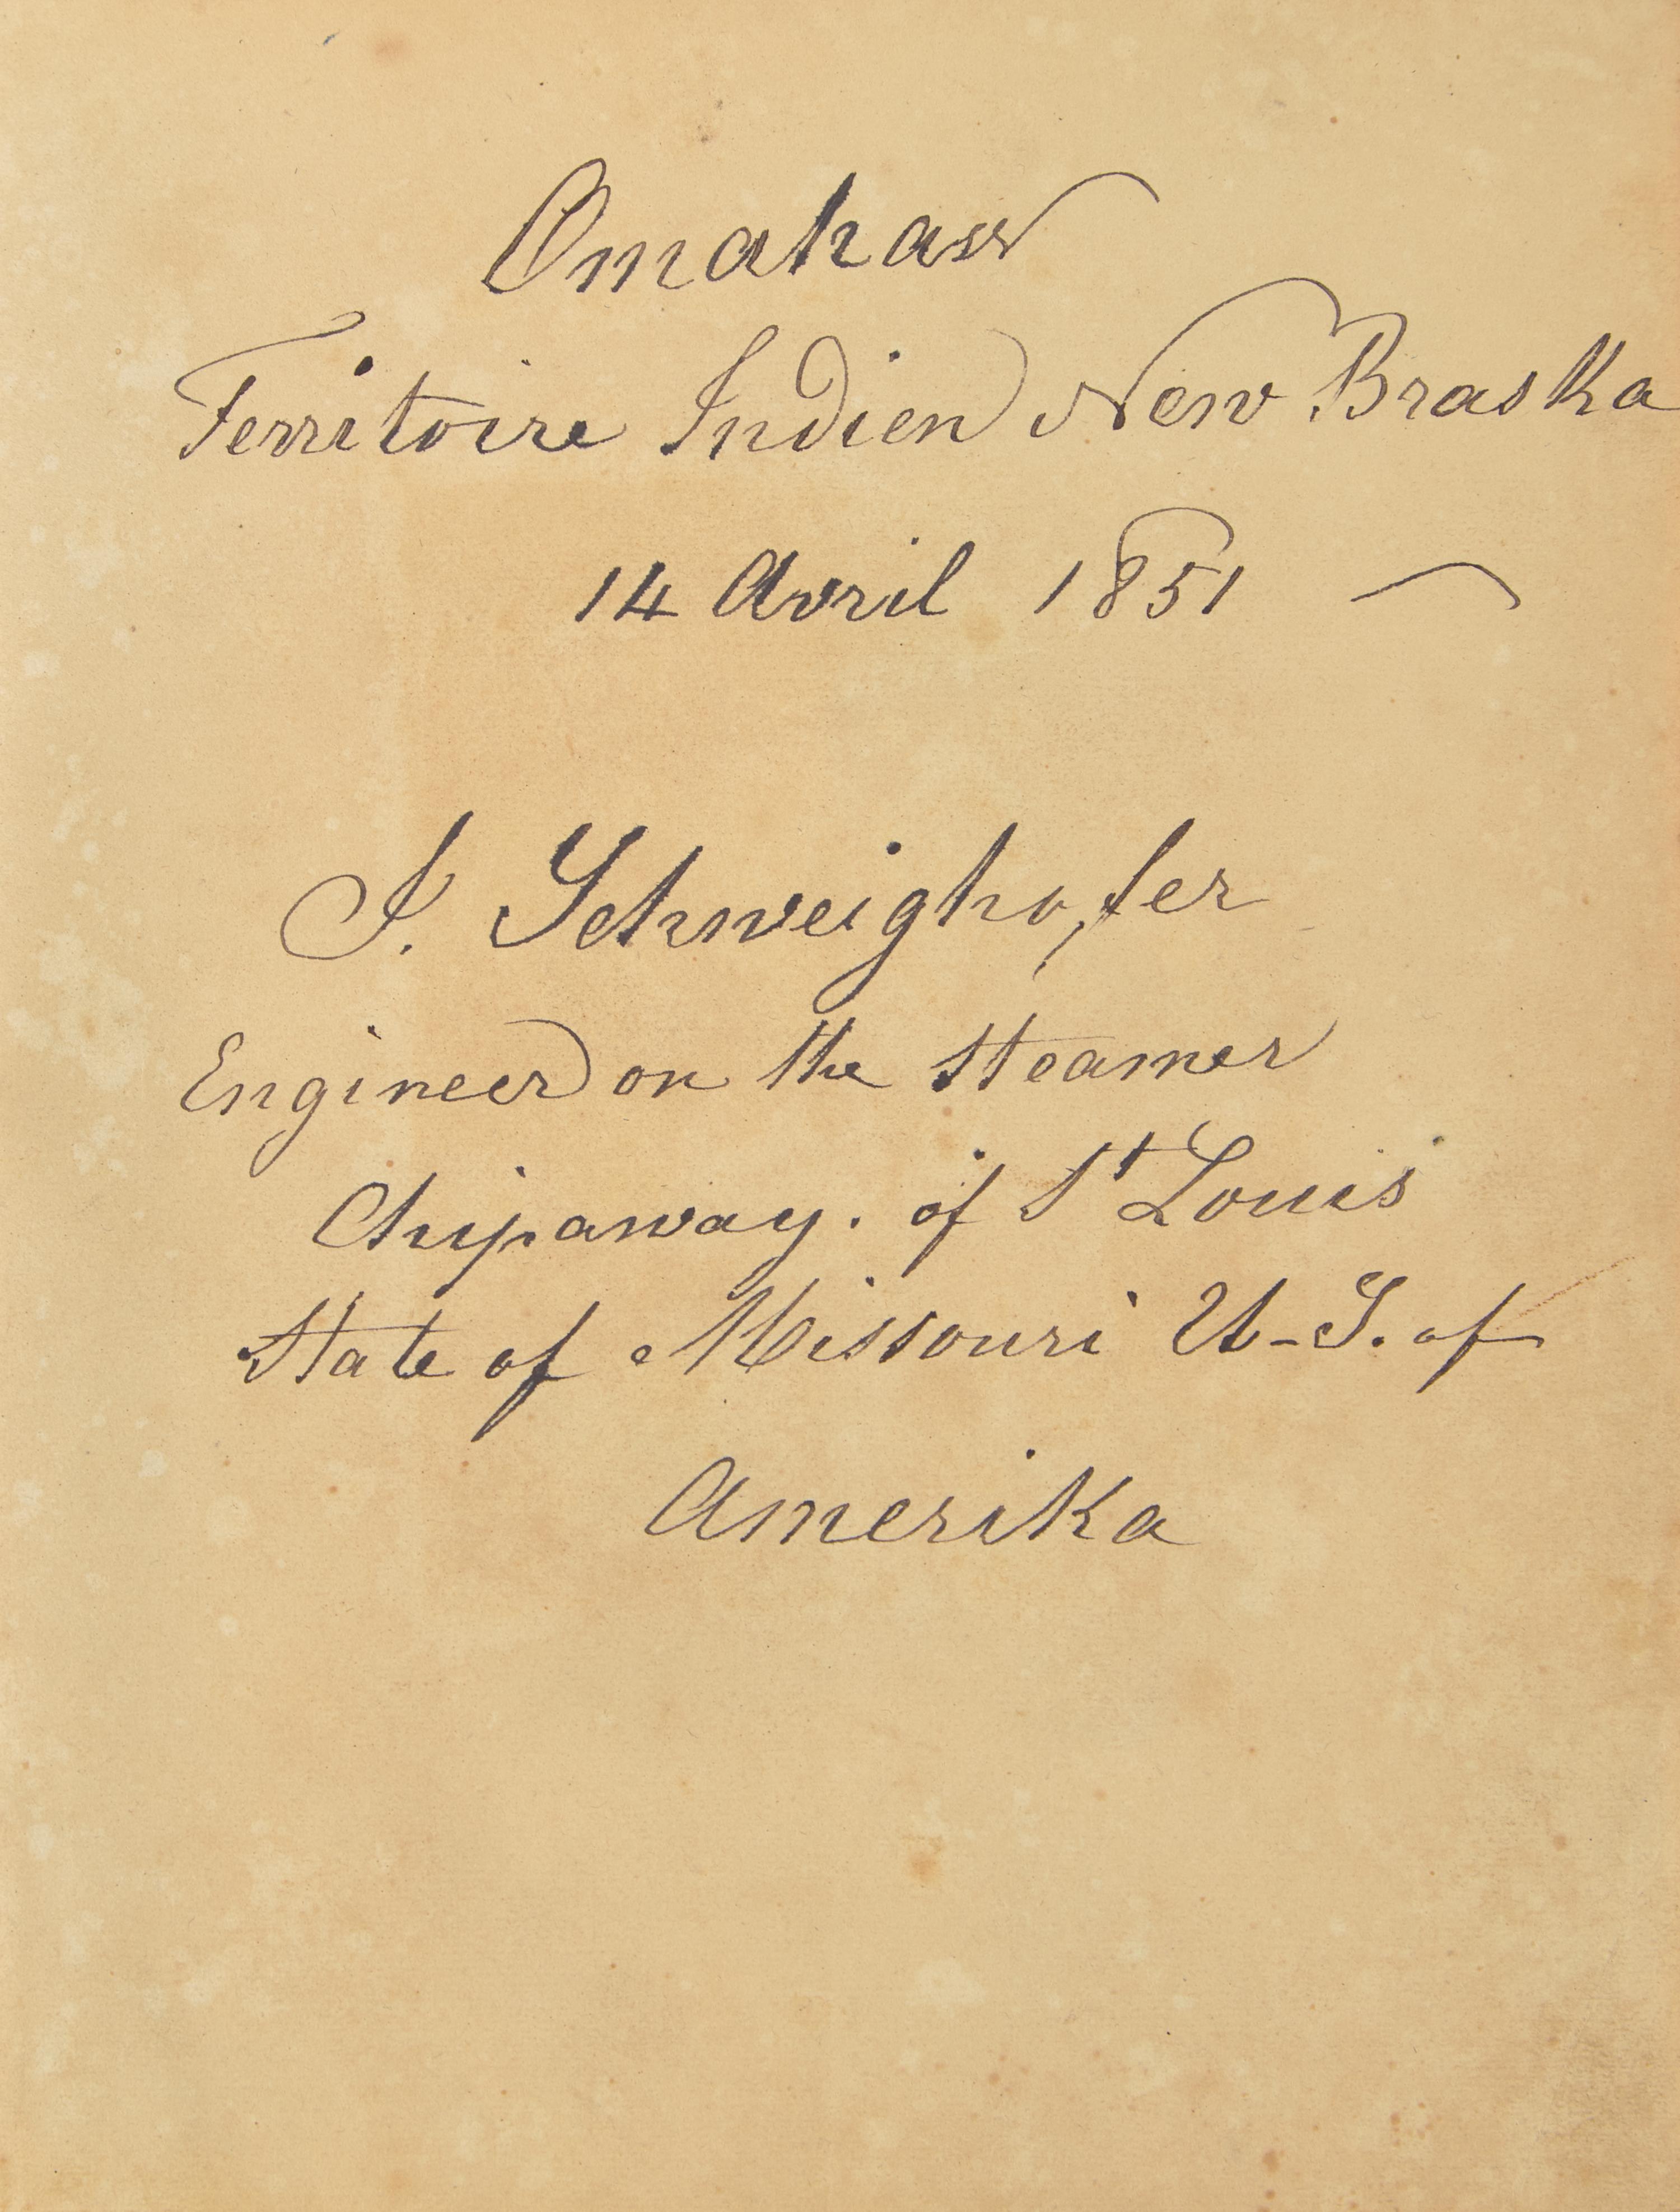 Omahaw
Territoire Indien New Braska
14 Avril 1851
J. Schweighofer
Engineer on the Steamer
Chipaway. of St Louis
State of Missouri U-S. of
Amerika